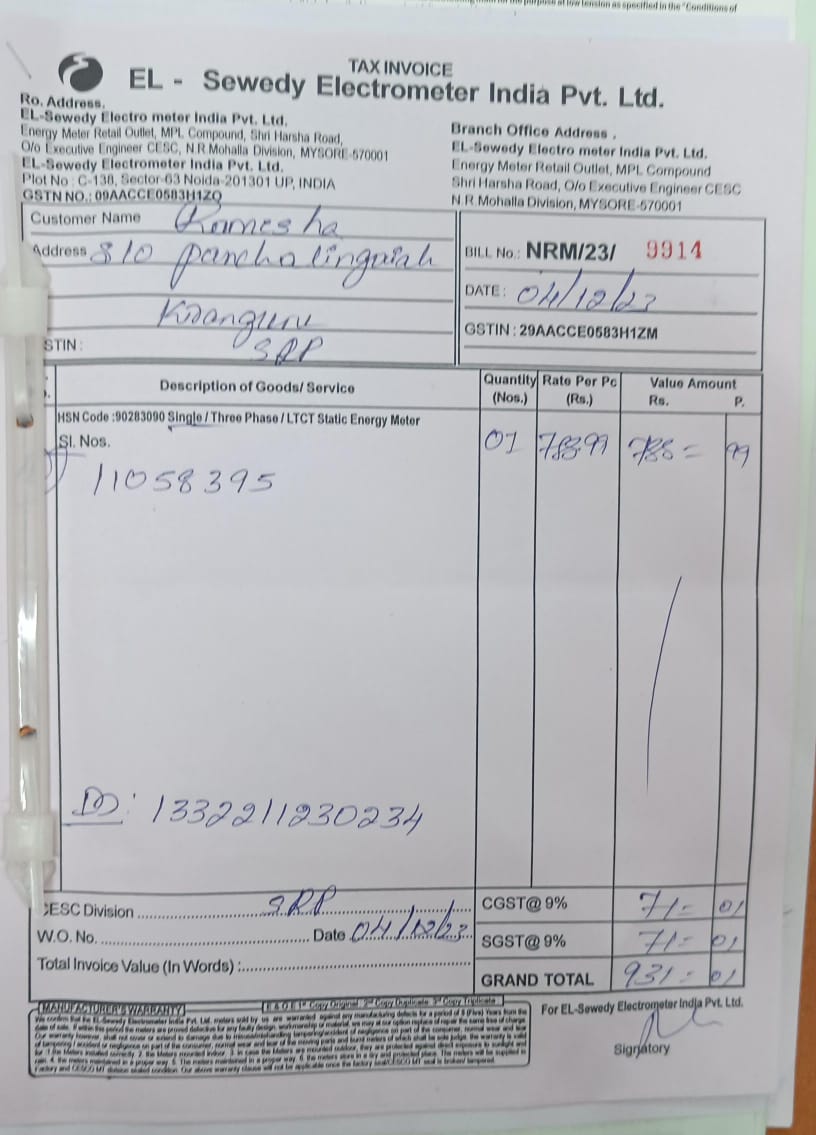 the purpose at low tension as specified in the "Conditions of
TAX INVOICE
EL - Sewedy Electrometer India Pvt. Ltd.
Ro. Address.
EL-Sewedy Electro meter India Pvt. Ltd.
Energy Meter Retail Outlet, MPL Compound, Shri Harsha Road,
O/o Executive Engineer CESC, N.R.Mohalla Division, MYSORE-570001
EL-Sewedy Electrometer India Pvt. Ltd.
Plot No : C-138, Sector-63 Noida-201301 UP, INDIA
GSTN NO.: 09AACCE0583H1ZQ
Branch Office Address .
EL-Sewedy Electro meter India Pvt. Ltd.
Energy Meter Retail Outlet, MPL Compound
Shri Harsha Road, O/o Executive Engineer CESC
N.R.Mohalla Division, MYSORE-570001
Customer Name Ramesha
Address S/O panchalingaiah
Kiranguru
STIN : SRP
BILL No.: NRM/23/ 9914
DATE : 04/12/23
GSTIN : 29AACCE0583H1ZM
Description of Goods/ Service Quantity (Nos.) Rate Per Pc (Rs.) Value Amount Rs. P.
HSN Code :90283090 Single / Three Phase / LTCT Static Energy Meter
Sl. Nos. 01 99 = 99
11058395
D: 1332211230234
CESC Division SRP CGST@ 9% 71= 01
W.O. No. Date 04/12/23 SGST@ 9% 71= 01
Total Invoice Value (In Words) : GRAND TOTAL 931= 01
MANUFACTURER'S WARRANTY
E & O E 1st Copy Original 2nd Copy Duplicate 3rd Copy Triplicate
For EL-Sewedy Electrometer India Pvt. Ltd.
Signatory